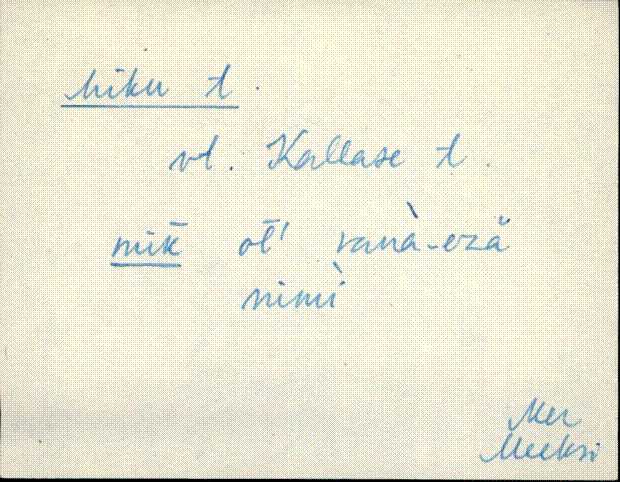 Miku t.
vt. Kallase t.
mik̄ oĺľ vanà-ezä̆
nimì
Mer
Meeksi